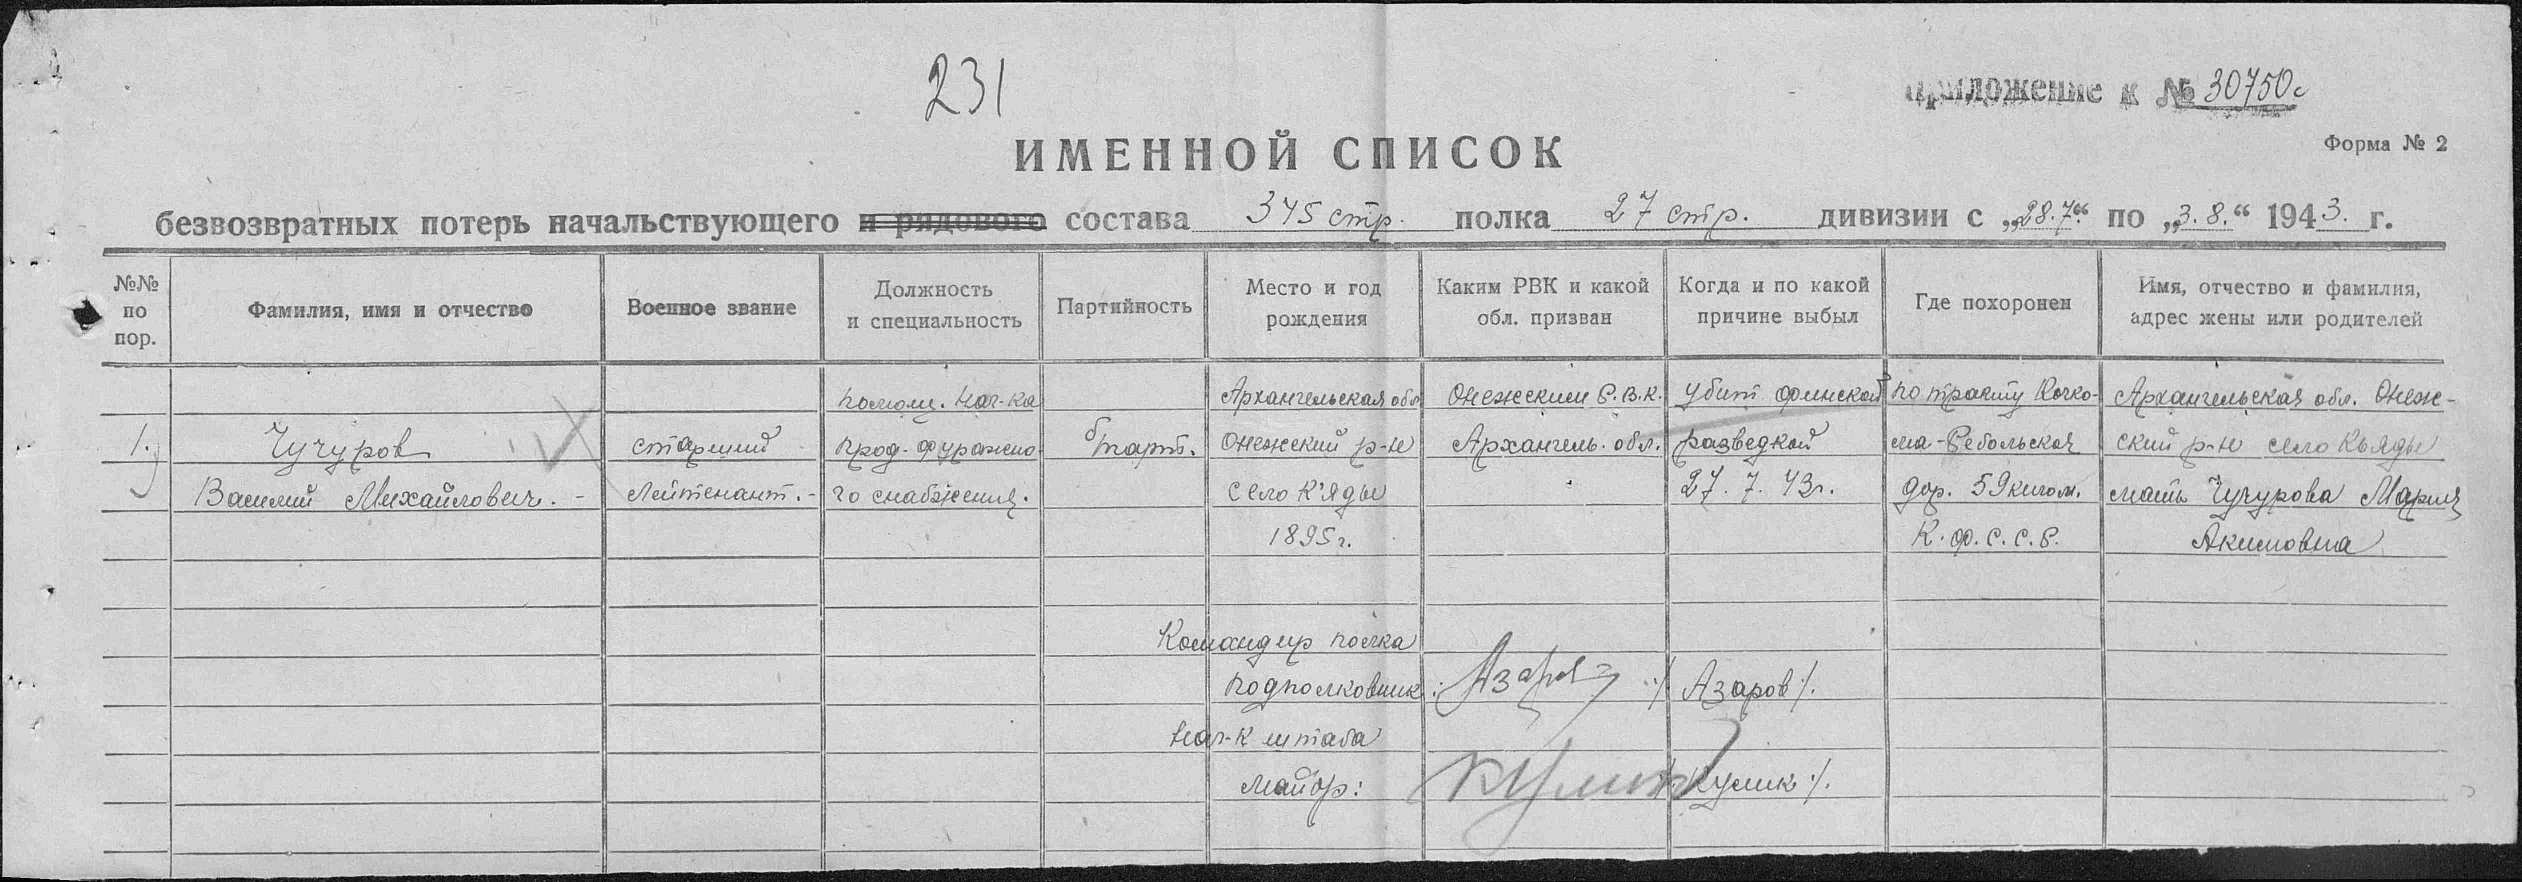 231
Приложение к № 30750с
Форма № 2
ИМЕННОЙ СПИСОК
безвозвратных потерь начальствующего и рядового состава 345 стр. полка 27 стр. дивизии с „28.7.“ по „3.8.“ 1943. г.
№№ по пор.
Фамилия, имя и отчество
Военное звание
Должность и специальность
Партийность
Место и год рождения
Каким РВК и какой обл. призван
Когда и по какой причине выбыл
Где похоронен
Имя, отчество и фамилия, адрес жены или родителей
1.
Чучуров
Василий Михайлович. -
старший
лейтенант. -
помощ. нач-ка
прод. фуражно
го снабжения.
б/парт.
Архангельская обл
Онежский р-н
село К'яды
1895г.
Онежским Р.В.К.
Архангель. обл.
убит финской
разведкой
27. 7. 43г.
по тракту Кочко-
ма-Ребольская
дор. 59 килом.
К. ф. С. С. Р.
Архангельская обл. Онеж-
ский р-н село Кьяды
мать Чучурова Мария
Акимовна
Командир полка
подполковник: Азаров ./ Азаров ./.
Нач-к штаба
майор: Кулик / Кулик ./.